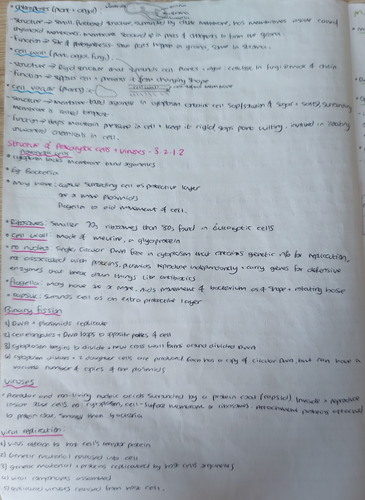 • chloroplasts (plant + algal)
Structure → small flattened structure, surrounded by double membrane, has membranes inside called
thylakoid membranes, membrane stacked up in parts of chloroplasts to form the grana.
- function → site of photosynthesis some parts happen in grana, some in stroma.
• cell wall (plant, algal, fungi)
- structure → rigid structure that surrounds cell, plants + algae cellulose in fungi chitin
- function → support cell + prevent it from changing shape
• cell vacuole (plants)
- structure → membrane-bound organelle in cytoplasm contains cell sap (solution of sugar + salts), surrounding
membrane is called tonoplast
- function → helps maintain pressure in cell + keep it rigid, stops plant wilting, involved in isolating
unwanted chemicals in cell.
Structure of Prokaryotic cells + viruses - 3.2.1.2
Prokaryotic cells
• cytoplasm lacks membrane bound organelles
• Eg Bacteria
• may have: capsule surrounding cell as protective layer
1 or more plasmids
flagella to aid movement of cell.
• Ribosomes: smaller 70s ribosomes than 80s found in eukaryotic cells
• Cell wall: made of murein, a glycoprotein
• no nucleus: single circular DNA free in cytoplasm that contains genetic info for replication,
no associated with proteins, plasmids reproduce independently + carry genes for defensive
enzymes that break down things like antibiotics
• flagella: may have 1 or more, aids movement of bacterium, rotating
• capsule: surrounds cell as an extra protective layer
Binary fission
1) DNA + plasmids replicate
2) cell elongates + DNA loops to opposite poles of cell
3) cytoplasm begins to divide + new cell wall forms around divided DNA
4) cytoplasm divides + 2 daughter cells are produced. Each has a copy of circular DNA, but can have a
variable number of copies of the plasmids
Viruses
• Acellular and non-living nucleic acids surrounded by a protein coat (capsid) invade + reproduce
inside cells no cytoplasm, cell-surface membrane or ribosomes. attachment proteins attached
to protein coat. Smaller than bacteria
Viral replication:
1) virus attach to host cell's receptor protein
2) genetic material released into cell
3) genetic material + proteins replicated by host cell's
4) viral components assembled
5) replicated viruses released from host cell.